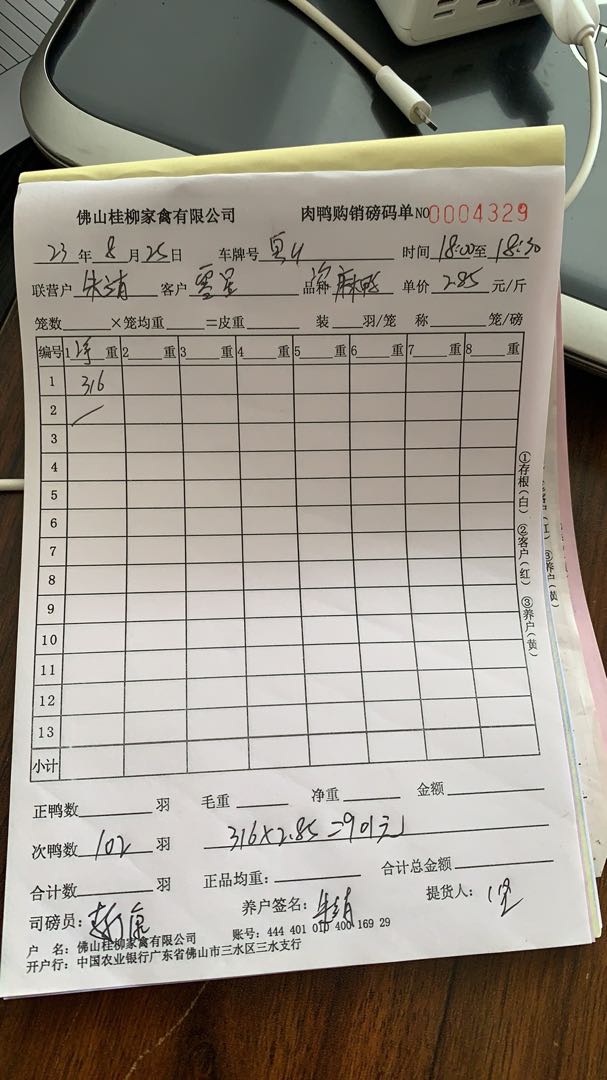 佛山桂柳家禽有限公司 肉鸭购销磅码单NO 0004329
23年8月25日 车牌号 时间18:00至18:30
联营户 客户 品种 次麻鸭 单价 2.85 元/斤
笼数 ×笼均重 =皮重 装 羽/笼 称 笼/磅
编号 1 净 重 2 重 3 重 4 重 5 重 6 重 7 重 8 重
1 316
2
3
4
5
6
7
8
9
10
11
12
13
小计
正鸭数 羽 毛重 净重 金额
次鸭数 102 羽 316×2.85=901元
合计数 羽 正品均重: 合计总金额
司磅员: 养户签名: 提货人:
户 名: 佛山桂柳家禽有限公司 账号: 444 401 010 400 169 29
开户行: 中国农业银行广东省佛山市三水区三水支行
①存根(白) ②客户(红) ③养户(黄)